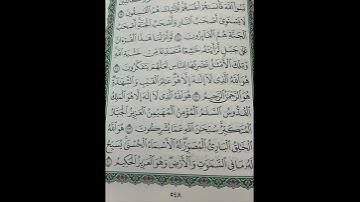 نسوا الله فأنسىهم أنفسهم أولئك هم الفسقون ١٩
لا يستوي أصحب النار وأصحب الجنة أصحب
الجنة هم الفائزون ٢٠ لو أنزلنا هذا القرءان
على جبل لرأيته خشعا متصدعا من خشية الله
وتلك الأمثل نضربها للناس لعلهم يتفكرون ٢١
هو الله الذي لا إله إلا هو علم الغيب والشهدة
هو الرحمن الرحيم ٢٢ هو الله الذي لا إله إلا هو الملك
القدوس السلم المؤمن المهيمن العزيز الجبار
المتكبر سبحن الله عما يشركون ٢٣ هو الله
الخلق البارئ المصور له الأسماء الحسنى يسبح
له ما في السموت والأرض وهو العزيز الحكيم ٢٤
٥٤٨